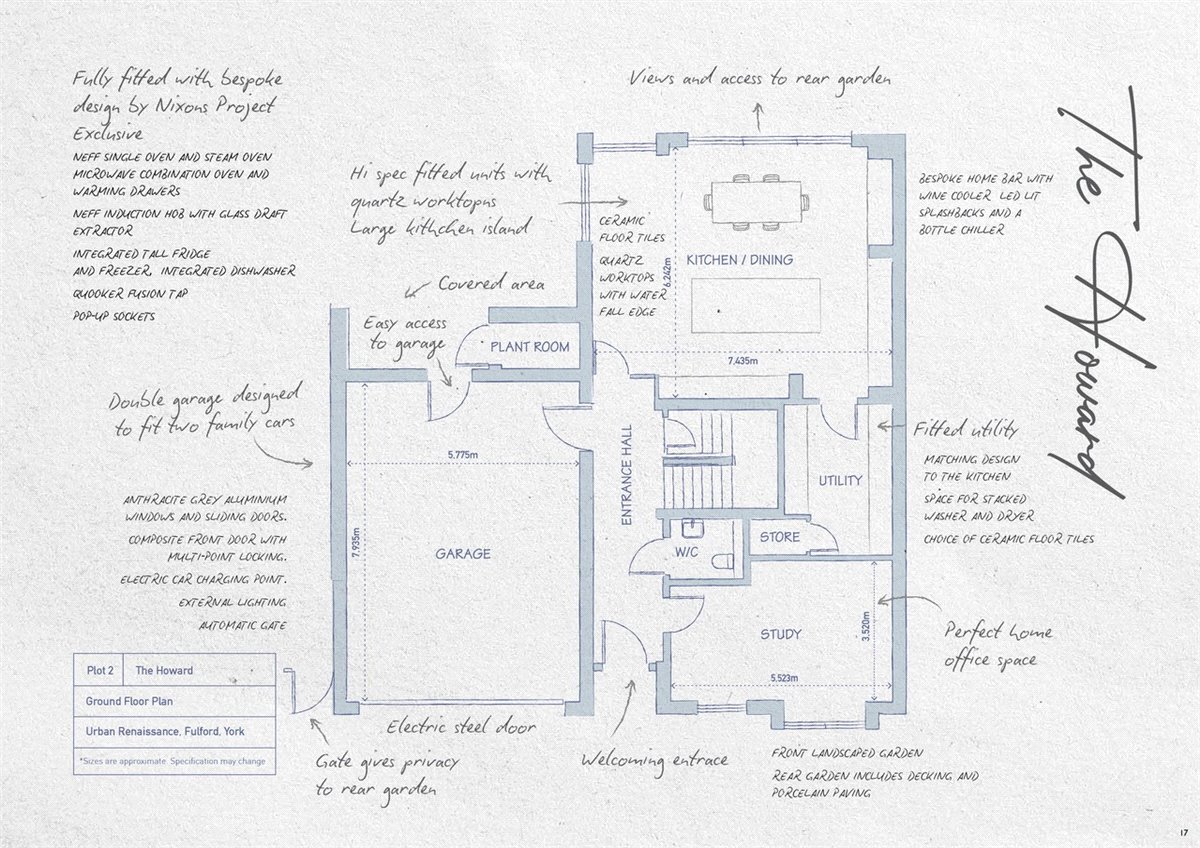 Fully fitted with bespoke
design by Nixons Project
Exclusive
NEFF SINGLE OVEN AND STEAM OVEN
MICROWAVE COMBINATION OVEN AND
WARMING DRAWERS
NEFF INDUCTION HOB WITH GLASS DRAFT
EXTRACTOR
INTEGRATED TALL FRIDGE
AND FREEZER, INTEGRATED DISHWASHER
QUOOKER FUSION TAP
POP-UP SOCKETS
Views and access to rear garden
The Howard
Hi spec fitted units with
quartz worktopns
Large kithchen island
CERAMIC
FLOOR TILES
QUARTZ
WORKTOPS
WITH WATER
FALL EDGE
6.242m
KITCHEN / DINING
7.435m
BESPOKE HOME BAR WITH
WINE COOLER LED LIT
SPLASHBACKS AND A
BOTTLE CHILLER
Covered area
Easy access
to garage
PLANT ROOM
Double garage designed
to fit two family cars
5.775m
7.935m
GARAGE
ENTRANCE HALL
UTILITY
STORE
W/C
Fitted utility
MATCHING DESIGN
TO THE KITCHEN
SPACE FOR STACKED
WASHER AND DRYER
CHOICE OF CERAMIC FLOOR TILES
ANTHRACITE GREY ALUMINIUM
WINDOWS AND SLIDING DOORS.
COMPOSITE FRONT DOOR WITH
MULTI-POINT LOCKING.
ELECTRIC CAR CHARGING POINT.
EXTERNAL LIGHTING
AUTOMATIC GATE
STUDY
3.520m
5.523m
Perfect home
office space
Plot 2 The Howard
Ground Floor Plan
Urban Renaissance, Fulford, York
*Sizes are approximate. Specification may change
Electric steel door
Gate gives privacy
to rear garden
Welcoming entrace
FRONT LANDSCAPED GARDEN
REAR GARDEN INCLUDES DECKING AND
PORCELAIN PAVING
17